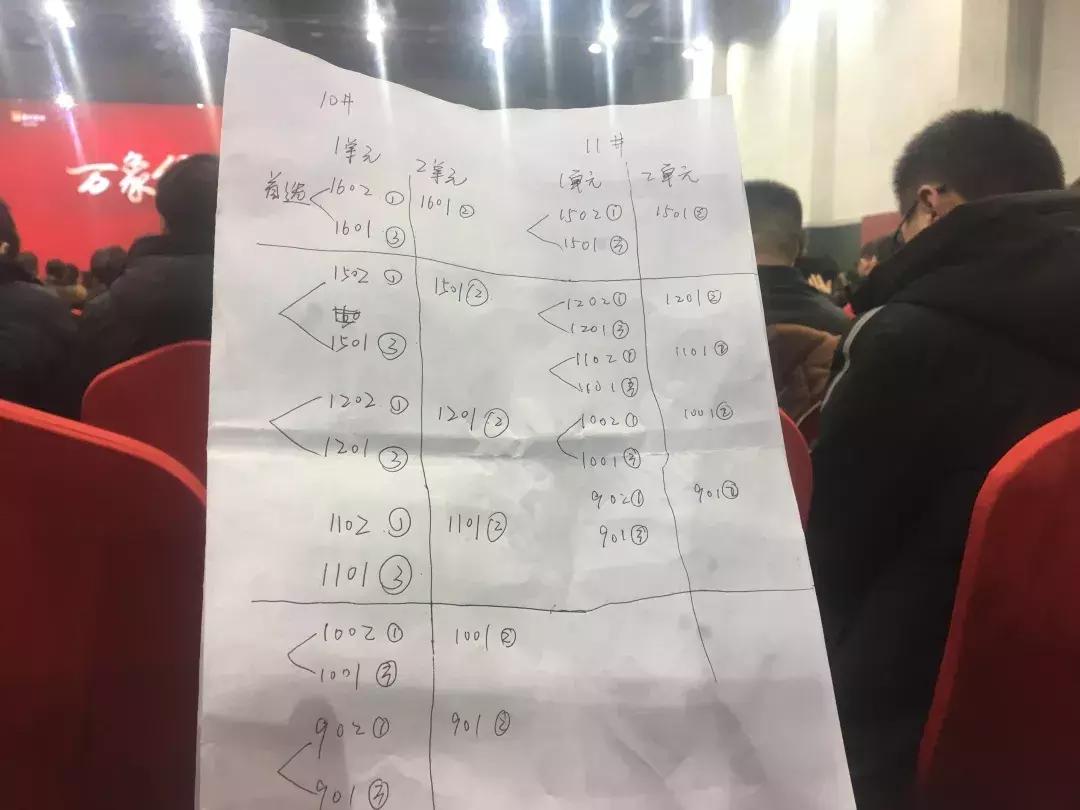 万象
10#
1单元
2单元
首选
1602 ①
1601 ②
1601 ③
1502 ①
1501 ②
1501 ③
1202 ①
1201 ②
1201 ③
1102 ①
1101 ②
1101 ③
1002 ①
1001 ②
1001 ③
902 ①
901 ②
901 ③
11#
1单元
2单元
1502 ①
1501 ②
1501 ③
1202 ①
1201 ②
1201 ③
1102 ①
1101 ②
1101 ③
1002 ①
1001 ②
1001 ③
902 ①
901 ②
901 ③